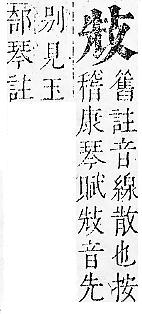 舊註音線散也按
稽康琴賦音先
別見玉
部琴註